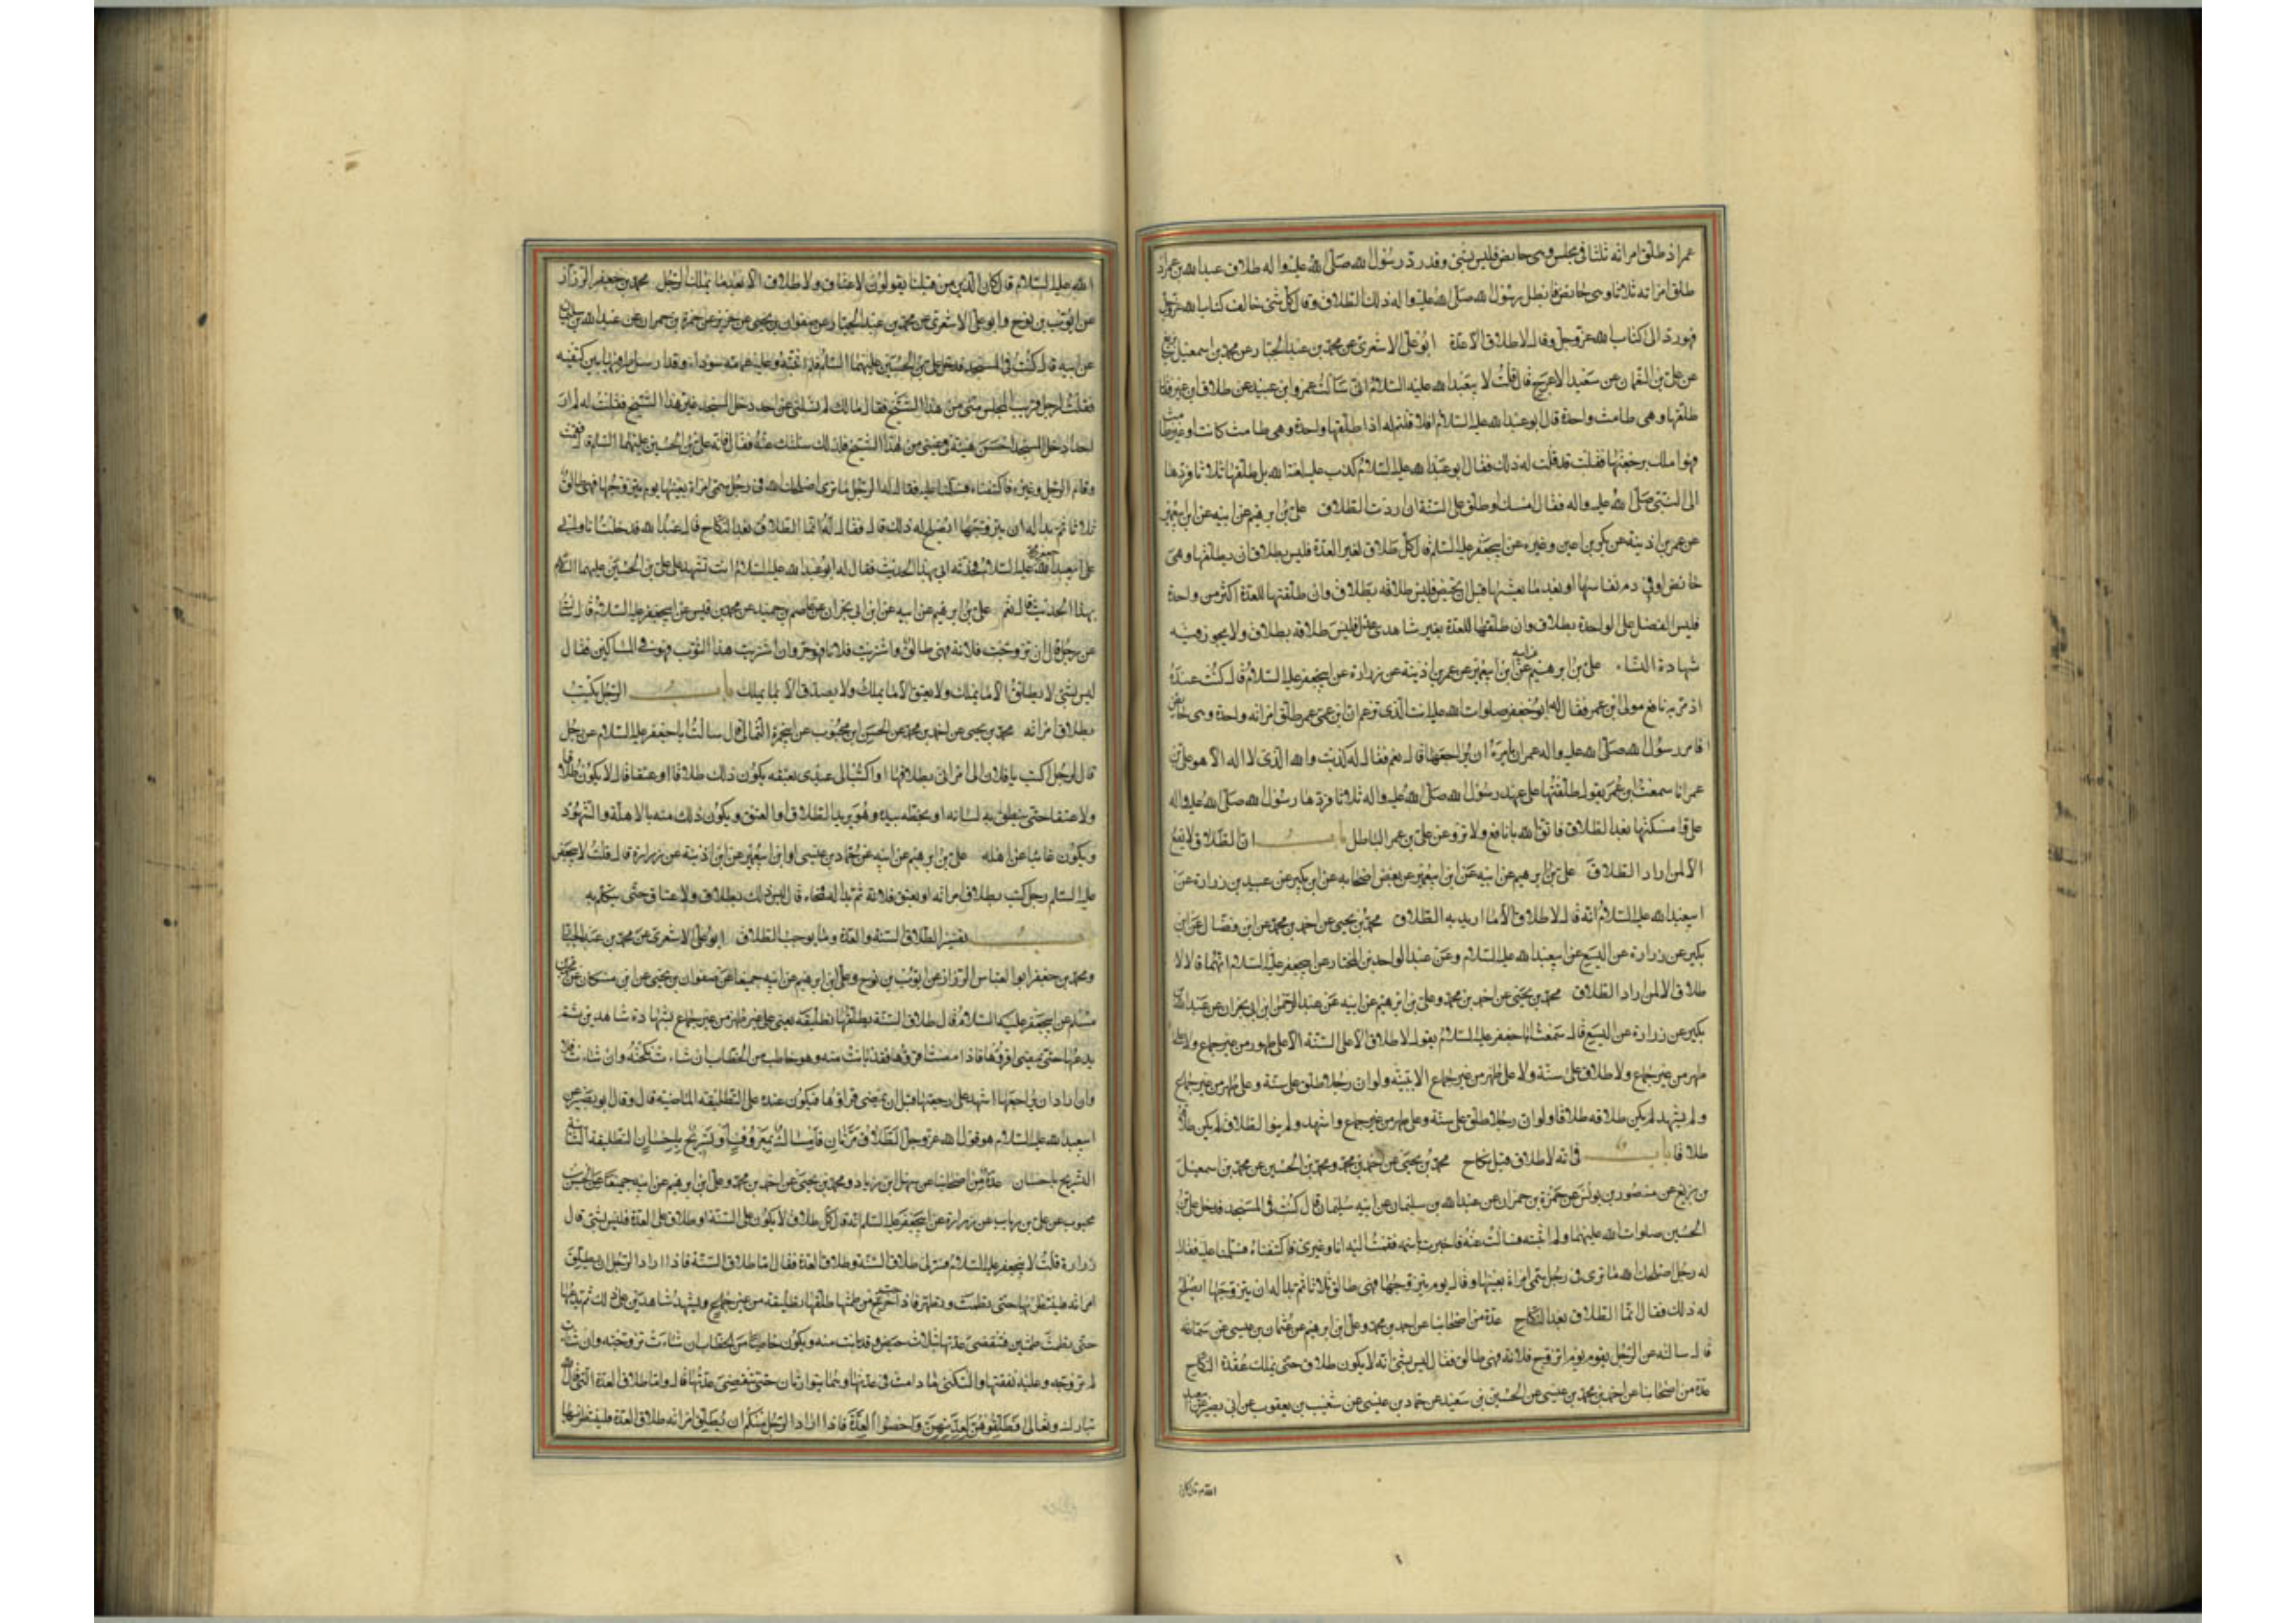 عمر اذ طلق امراته ثلثا في مجلس وهى حايض فليس بشئ وقد رد رسول الله صلى الله عليه واله طلاق عبد الله بن عمر اذ
طلق امراته ثلاثا وهى حايض فابطل رسول الله صلى الله عليه واله ذلك الطلاق وقال كل شئ خالف كتاب الله عز وجل
فهو رد الى كتاب الله عز وجل وقال لا طلاق الا في عدة ابو على الاشعرى عن محمد بن عبد الجبار عن محمد بن اسمعيل بن بزيع
عن على بن النعمان عن سعيد الاعرج قال قلت لابى عبد الله عليه السلام انى سالت عمرو ابن عبيد عن طلاق ابن عمر فقال
طلقها وهى طامث واحدة قال ابو عبد الله عليه السلام افلا قلتم له اذا طلقها واحدة وهى طامث كانت او غير طامث
فهو املك برجعتها فقلت قد قلت له ذلك فقال ابو عبد الله عليه السلام كذب عليه لعنة الله بل طلقها ثلاثا فردها
الى النبى صلى الله عليه واله فقال امسك او طلق على السنة ان اردت الطلاق على بن ابرهيم عن ابيه عن ابن ابى عمير
عن عمر بن اذينة عن بكير بن اعين وغيره عن ابى جعفر عليه السلام قال كل طلاق لغير العدة فليس بطلاق ان يطلقها وهى
حائض او في دم نفاسها او بعد ما يغشيها قبل ان تحيض فليس طلاقه بطلاق وان طلقها للعدة اكثر من واحدة
فليس الفضل على الواحدة بطلاق وان طلقها للعدة بغير شاهدى عدل فليس طلاقه بطلاق ولا يجوز فيه
شهادة النساء على بن ابرهيم عن ابيه عن ابن ابى عمير عن عمر بن اذينة عن زرارة عن ابى جعفر عليه السلام قال كنت عنده
اذ مر به نافع مولى ابن عمر فقال له ابو جعفر صلوات الله عليه انت الذى تزعم ان ابن عمر طلق امراته واحدة وهى حايض
فامر رسول الله صلى الله عليه واله عمر ان يامره ان يراجعها قال نعم فقال له كذبت والله الذى لا اله الا هو على ابن
عمر انا سمعت ابن عمر يقول طلقتها على عهد رسول الله صلى الله عليه واله ثلاثا فردها رسول الله صلى الله عليه واله
على وامسكتها بعد الطلاق فاتق الله يا نافع ولا ترو عن على بن عمر الباطل باب ان الطلاق لا يقع
الا لمن اراد الطلاق على بن ابرهيم عن ابيه عن ابن ابى عمير عن بعض اصحابه عن ابن بكير عن عبيد بن زرارة عن
ابى عبد الله عليه السلام انه قال لا طلاق الا ما اريد به الطلاق محمد بن يحيى عن احمد بن محمد عن ابن فضال عن ابن
بكير عن زرارة عن اليسع عن ابى عبد الله عليه السلام وعن عبد الواحد بن المختار عن ابى جعفر عليه السلام انهما قالا لا
طلاق الا لمن اراد الطلاق محمد بن يحيى عن احمد بن محمد وعلى بن ابرهيم عن ابيه عن عبد الرحمن ابن ابى نجران عن عبد الله بن
بكير عن زرارة عن اليسع قال سمعت ابا جعفر عليه السلام يقول لا طلاق الا على السنة الا على طهور من غير جماع ولا على
طهر من غير جماع ولا طلاق على سنة ولا على طهر من غير جماع الا ببينة ولو ان رجلا طلق على سنة وعلى طهر من غير جماع
ولم يشهد لم يكن طلاقه طلاقا ولو ان رجلا طلق على سنة وعلى طهر من غير جماع واشهد ولم ينو الطلاق لم يكن طلاقه
طلاقا باب في انه لا طلاق قبل نكاح محمد بن يحيى عن احمد بن محمد ومحمد بن الحسين عن محمد بن اسمعيل
بن بزيع عن منصور بن يونس عن حمزة بن حمران عن عبد الله بن سليمان عن ابيه سليمان قال كنت في المسجد فدخل على بن
الحسين صلوات الله عليهما ولم اثبته فسالت عنه فاخبرت باسمه فقمت اليه انا وغيرى فاكتنفناه فسلمنا عليه فقال
له رجل اصلحك الله ما ترى في رجل سمى امراة بعينها وقال يوم يتزوجها فهى طالق ثلاثا ثم بدا له ان يتزوجها ايصلح
له ذلك فقال انما الطلاق بعد النكاح عدة من اصحابنا عن احمد بن محمد وعلى ابن ابرهيم عن عثمان بن عيسى عن سماعة
قال سالته عن الرجل يقوم يوم اتزوج فلانة فهى طالق فقال ليس بشئ انه لا يكون طلاق حتى يملك عقدة النكاح
عدة من اصحابنا عن احمد بن محمد بن عيسى عن الحسين بن سعيد عن حماد بن عيسى عن شعيب بن يعقوب عن ابى بصير عن ابى عبد
الله عليه السلام قال كان
الله عليه السلام قال كان الذين من قبلنا يقولون لا عتاق ولا طلاق الا بعد ما يملك الرجل محمد بن جعفر الرزاز
عن ايوب بن نوح وابو على الاشعرى عن محمد بن عبد الجبار عن صفوان بن يحيى عن حريز عن حمزة بن حمران عن عبد الله بن سليمان
عن ابيه قال كنت في المسجد فدخل على بن الحسين عليهما السلام فلم اثبته وعليه عمامة سوداء وقد ارسل طرفيها بين كتفيه
فقلت لرجل قريب المجلس منى من هذا الشيخ فقال ما لك لم تسلنى عن احد دخل المسجد غير هذا الشيخ فقلت له لم ار
احدا دخل المسجد احسن هيئة في عينى من هذا الشيخ فلذلك سئلتك عنه فقال فانه على بن الحسين عليهما السلام قال فقمت
وقام الرجل وغيره فاكتنفناه فسلمنا عليه فقال له الرجل ما ترى اصلحك الله في رجل سمى امراة بعينها يوم يتزوجها فهى طالق
ثلاثا ثم بدا له ان يتزوجها ايصلح له ذلك قال فقال له انما الطلاق بعد النكاح قال عبد الله فدخلت انا وابى
على ابى عبد الله جعفر عليه السلام فحدثه ابى بهذا الحديث فقال له ابو عبد الله عليه السلام انت تشهد على على بن الحسين عليهما السلام
بهذا الحديث قال نعم على بن ابرهيم عن ابيه عن ابن ابى نجران عن عاصم بن حميد عن محمد بن قيس عن ابى جعفر عليه السلام قال سالته
عن رجل قال ان تزوجت فلانة فهى طالق وان اشتريت فلانا فهو حر وان اشتريت هذا الثوب فهو في المساكين فقال
ليس بشئ لا يطلق الا ما يملك ولا يعتق الا ما يملك ولا يصدق الا بما يملك باب الرجل يكتب
بطلاق امراته محمد بن يحيى عن احمد بن محمد عن الحسن ابن محبوب عن ابى حمزة الثمالى قال سالت ابا جعفر عليه السلام عن رجل
قال لرجل اكتب يا فلان الى امراتى بطلاقها او اكتب الى عبدى بعتقه يكون ذلك طلاقا او عتقا قال لا يكون طلاقا
ولا عتقا حتى ينطق به لسانه او يخطه بيده وهو يريد الطلاق او العتق ويكون ذلك منه بالاهلة والشهود
ويكون غائبا عن اهله على بن ابرهيم عن ابيه عن حماد بن عيسى او ابن ابى عمير عن ابن اذينة عن زرارة قال قلت لابى جعفر
عليه السلم رجل كتب بطلاق امراته او بعتق غلامه ثم بدا له فمحاه قال ليس ذلك بطلاق ولا عتاق حتى يتكلم به
باب تفسير الطلاق السنة والعدة وما يوجب الطلاق ابو على الاشعرى عن محمد بن عبد الجبار
ومحمد بن جعفر ابو العباس الرزاز عن ايوب بن نوح وعلى ابن ابرهيم عن ابيه جميعا عن صفوان بن يحيى عن ابن مسكان عن محمد بن
مسلم عن ابى جعفر عليه السلام قال طلاق السنة يطلقها تطليقة يعنى على طهر من غير جماع بشهادة شاهدين ثم
يدعها حتى تمضى اقراؤها فاذا مضت اقراؤها فقد بانت منه وهو خاطب من الخطاب ان شاءت نكحته وان شاءت فلا
وان اراد ان يراجعها اشهد على رجعتها قبل ان تمضى اقراؤها فتكون عنده على التطليقة الماضية قال وقال ابو بصير عن
ابى عبد الله عليه السلام هو قول الله عز وجل الطلاق مرتان فامساك بمعروف او تسريح باحسان التطليقة الثانية
التسريح باحسان عدة من اصحابنا عن سهل ابن زياد ومحمد بن يحيى عن احمد بن محمد وعلى ابن ابرهيم عن ابيه جميعا عن الحسن بن
محبوب عن على بن رياب عن زرارة عن ابى جعفر عليه السلم انه قال كل طلاق لا يكون على السنة او طلاق على العدة فليس بشئ قال
زرارة قلت لابى جعفر عليه السلام فسر لى طلاق السنة وطلاق العدة فقال اما طلاق السنة فاذا اراد الرجل ان يطلق
امراته فلينتظر بها حتى تطمث وتطهر فاذا خرجت من طمثها طلقها تطليقة من غير جماع ويشهد شاهدين على ذلك ثم يدعها
حتى تطمث طمثين فتنقضى عدتها بثلاث حيض وقد بانت منه ويكون خاطبا من الخطاب ان شاءت تزوجته وان شاءت
لم تزوجه وعليه نفقتها والسكنى ما دامت في عدتها وهما يتوارثان حتى تنقضى عدتها قال واما طلاق العدة التى قال الله
تبارك وتعالى فطلقوهن لعدتهن واحصوا العدة فاذا اراد الرجل منكم ان يطلق امراته طلاق العدة فلينتظر بها